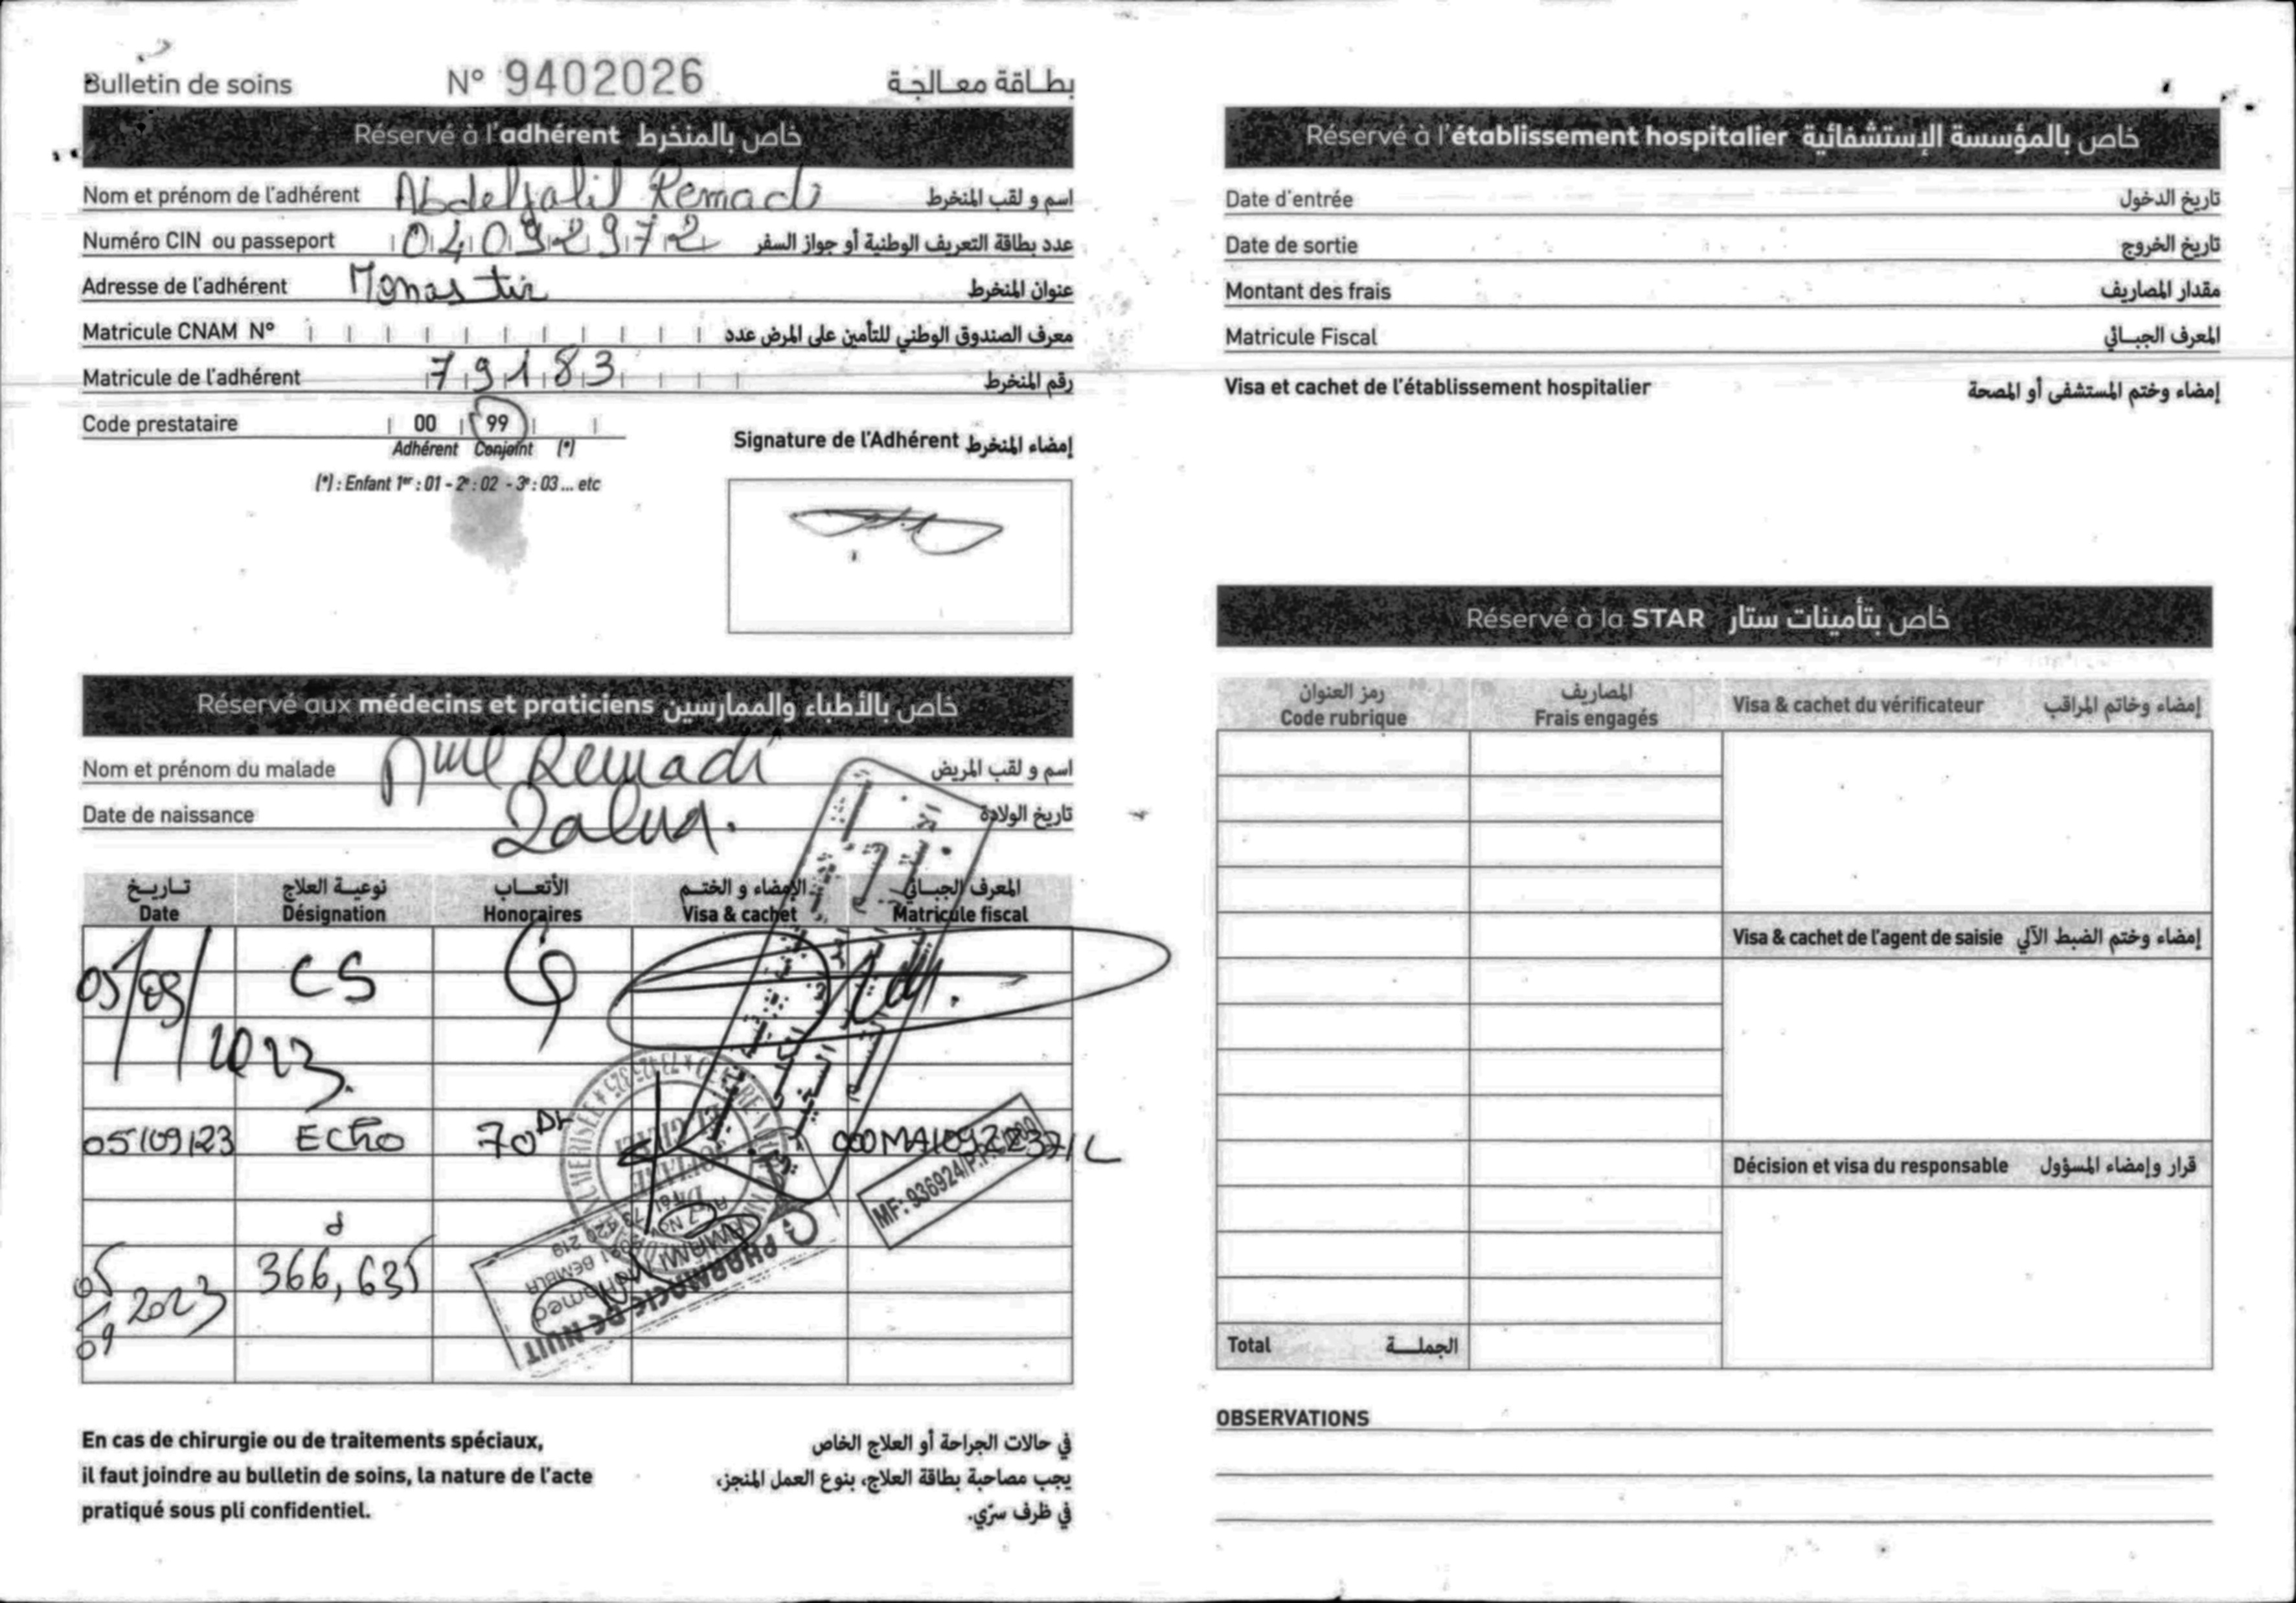 Bulletin de soins N° 9402026 بطاقة معالجة
Réservé à l'adhérent خاص بالمنخرط
Nom et prénom de l'adhérent Abdeljalil Remadi اسم و لقب المنخرط
Numéro CIN ou passeport 04092972 عدد بطاقة التعريف الوطنية أو جواز السفر
Adresse de l'adhérent Monastir عنوان المنخرط
Matricule CNAM N° معرف الصندوق الوطني للتأمين على المرض عدد
Matricule de l'adhérent 79183 رقم المنخرط
Code prestataire 00 99
Adhérent Conjoint (*)
(*) : Enfant 1er : 01 - 2e : 02 - 3e : 03 ... etc
Signature de l'Adhérent إمضاء المنخرط
Réservé aux médecins et praticiens خاص بالأطباء والممارسين
Nom et prénom du malade Remadi اسم و لقب المريض
Date de naissance تاريخ الولادة
تاريخ نوعية العلاج الأتعاب الإمضاء و الختم المعرف الجبائي
Date Désignation Honoraires Visa & cachet Matricule fiscal
05/09/2023 CS
05/09/23 ECHO 70 DT
MF: 936924/P
05/09/2023 366,635
PHARMACIE DE NUIT
En cas de chirurgie ou de traitements spéciaux,
il faut joindre au bulletin de soins, la nature de l'acte
pratiqué sous pli confidentiel.
في حالات الجراحة أو العلاج الخاص
يجب مصاحبة بطاقة العلاج، بنوع العمل المنجز،
في ظرف سرّي.
Réservé à l'établissement hospitalier خاص بالمؤسسة الإستشفائية
Date d'entrée تاريخ الدخول
Date de sortie تاريخ الخروج
Montant des frais مقدار المصاريف
Matricule Fiscal المعرف الجبائي
Visa et cachet de l'établissement hospitalier إمضاء وختم المستشفى أو المصحة
Réservé à la STAR خاص بتأمينات ستار
رمز العنوان المصاريف
Code rubrique Frais engagés Visa & cachet du vérificateur إمضاء وخاتم المراقب
Visa & cachet de l'agent de saisie إمضاء وختم الضبط الآلي
Décision et visa du responsable قرار وإمضاء المسؤول
Total الجملة
OBSERVATIONS